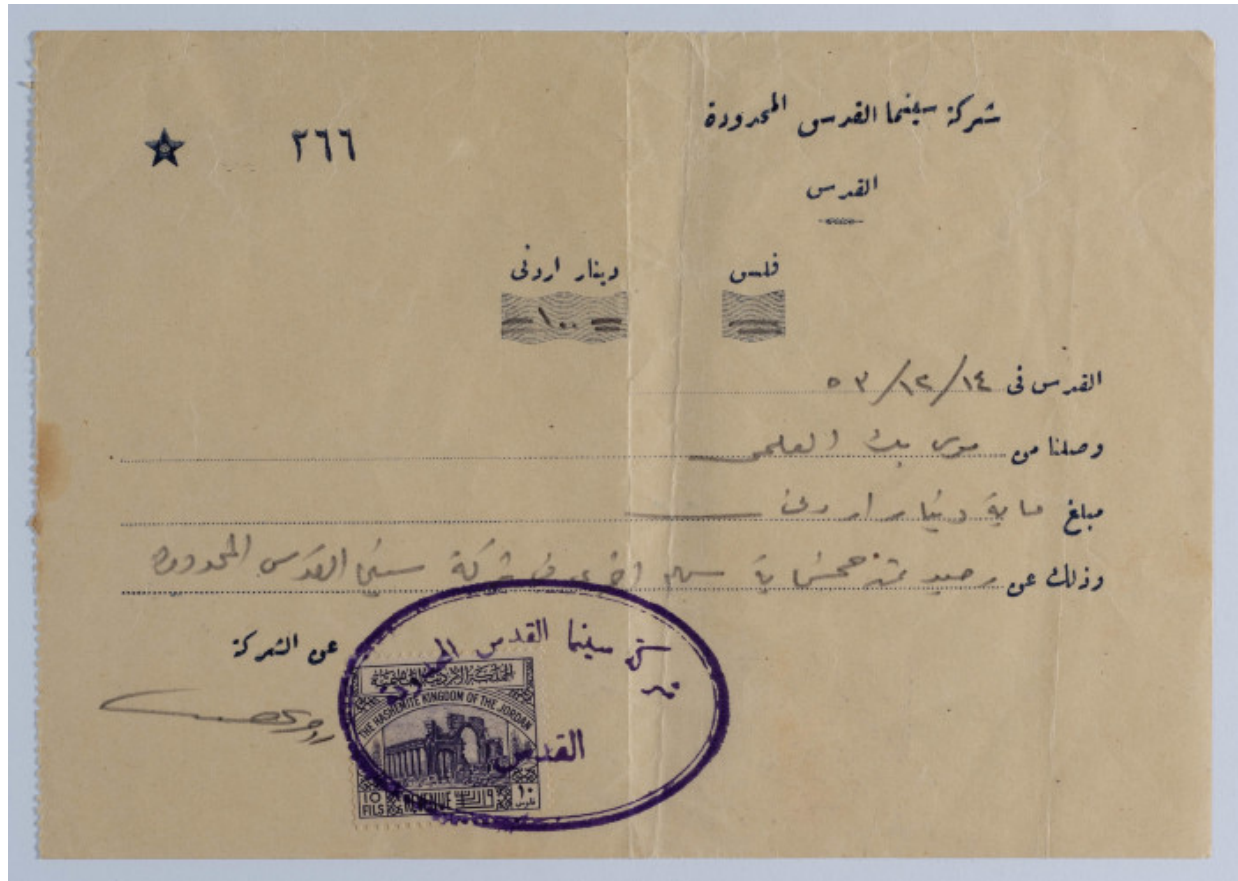 شركة سينما القدس المحدودة
٢٦٦
القدس
فلس دينار اردنى
= ١٠٠ =
القدس فى ١٤/١٢/٥٣
وصلنا من موسى بك العلمي
مبلغ ماية دينار اردني
وذلك عن رصيد ثمن خمسماية سهم اخرى في شركة سينما القدس المحدودة
عن الشركة
شركة سينما القدس المحدودة
القدس
المملكة الأردنية الهاشمية
THE HASHEMITE KINGDOM OF THE JORDAN
10 FILS REVENUE ١٠ فلوس